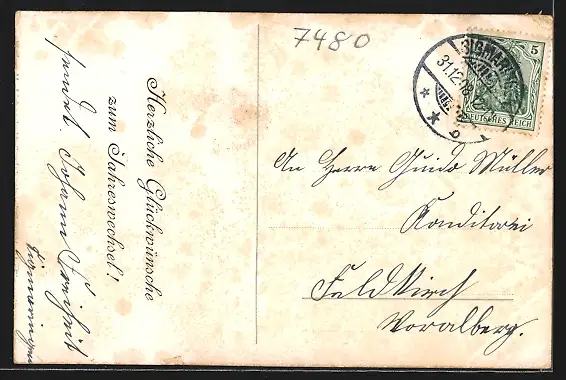 7480
SIGMARINGEN
31.12.08
5
DEUTSCHES REICH
Herzliche Glückwünsche
zum Jahreswechsel!
sendet Johann
Sigmaringen
An Herrn Guido Müller
Konditorei
Feldkirch
Voralberg.